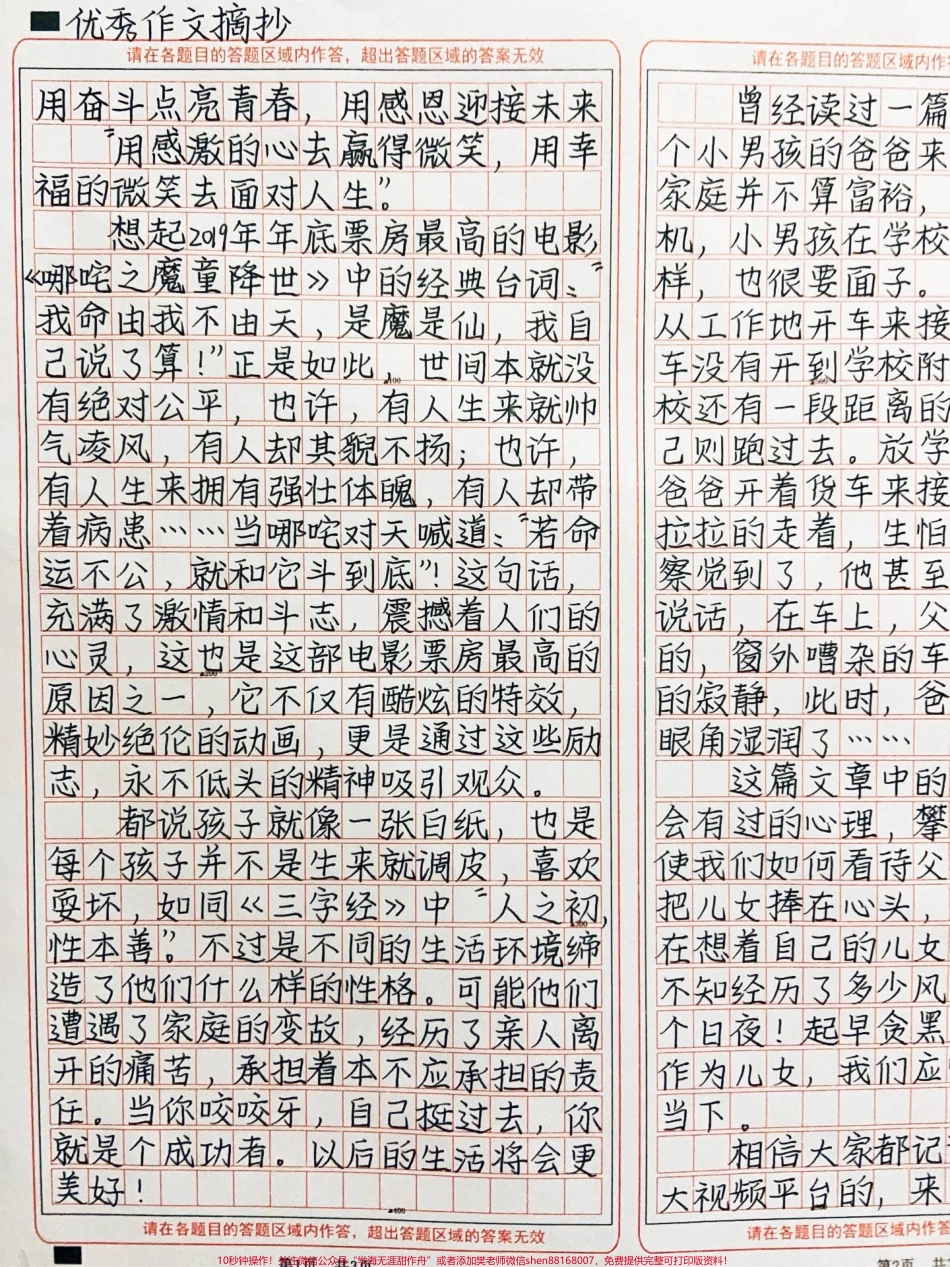 优秀作文摘抄
请在各题目的答题区域内作答，超出答题区域的答案无效
用奋斗点亮青春，用感恩迎接未来
“用感激的心去赢得微笑，用幸
福的微笑去面对人生”。
想起2019年年底票房最高的电影
《哪咤之魔童降世》中的经典台词：“
我命由我不由天，是魔是仙，我自
己说了算！”正是如此，世间本就没
▲100
有绝对公平，也许，有人生来就帅
气凌风，有人却其貌不扬；也许，
有人生来拥有强壮体魄，有人却带
着病患……当哪咤对天喊道：“若命
运不公，就和它斗到底”！这句话，
充满了激情和斗志，震撼着人们的
心灵，这也是这部电影票房最高的
▲200
原因之一，它不仅有酷炫的特效，
精妙绝伦的动画，更是通过这些励
志，永不低头的精神吸引观众。
都说孩子就像一张白纸，也是
每个孩子并不是生来就调皮，喜欢
耍坏，如同《三字经》中“人之初，
▲300
性本善”。不过是不同的生活环境缔
造了他们什么样的性格。可能他们
遭遇了家庭的变故，经历了亲人离
开的痛苦，承担着本不应承担的责
任。当你咬咬牙，自己挺过去，你
就是个成功者。以后的生活将会更
美好！
▲400
请在各题目的答题区域内作答，超出答题区域的答案无效
第1页 共2页
请在各题目的答题区域内作答
曾经读过一篇
个小男孩的爸爸来
家庭并不算富裕，
机，小男孩在学校
样，也很要面子。
从工作地开车来接
车没有开到学校附
▲500
校还有一段距离的
己则跑过去。放学
爸爸开着货车来接
拉拉的走着，生怕
察觉到了，他甚至
说话，在车上，父
的，窗外嘈杂的车
的寂静，此时，爸
眼角湿润了……
这篇文章中的
会有过的心理，攀
使我们如何看待父
把儿女捧在心头，
在想着自己的儿女
不知经历了多少风
个日夜！起早贪黑
作为儿女，我们应
当下。
相信大家都记
大视频平台的，来
请在各题目的答题区域内作答
第2页 共
10秒钟操作！关注微信公众号“学海无涯甜作舟”或者添加樊老师微信shen88168007，免费提供完整可打印版资料！